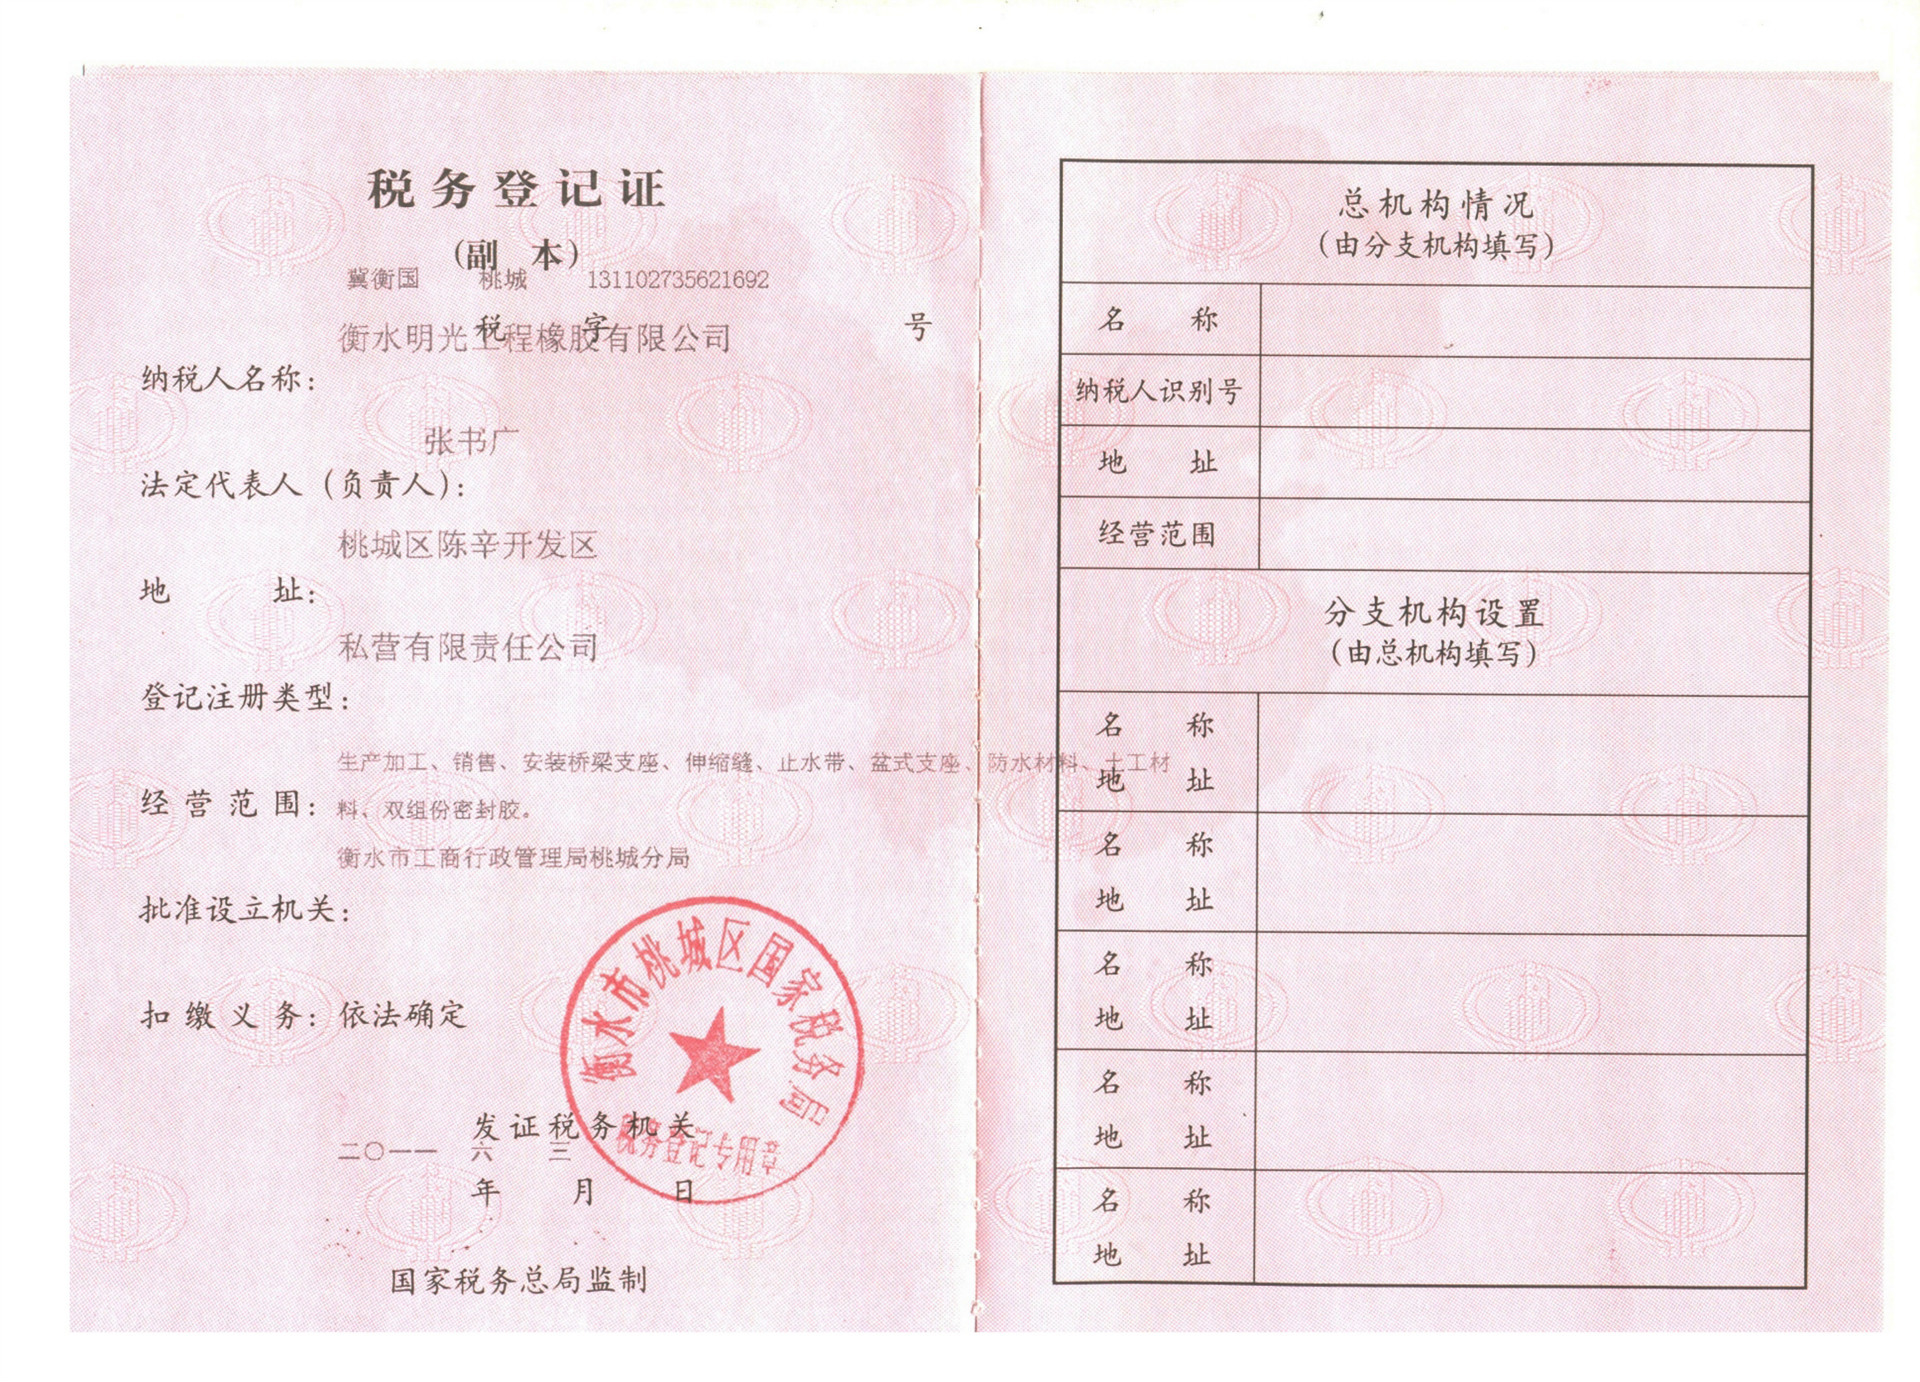 税务登记证
(副 本)
冀衡国 桃城 131102735621692
税 字 号
衡水明光工程橡胶有限公司
纳税人名称:
张书广
法定代表人(负责人):
桃城区陈辛开发区
地 址:
私营有限责任公司
登记注册类型:
生产加工、销售、安装桥梁支座、伸缩缝、止水带、盆式支座、防水材料、土工材
经营范围: 料、双组份密封胶。
衡水市工商行政管理局桃城分局
批准设立机关:
扣缴义务: 依法确定
衡水市桃城区国家税务局
税务登记专用章
发证税务机关
二〇一一 六 三
年 月 日
国家税务总局监制
总机构情况
(由分支机构填写)
名 称
纳税人识别号
地 址
经营范围
分支机构设置
(由总机构填写)
名 称
地 址
名 称
地 址
名 称
地 址
名 称
地 址
名 称
地 址